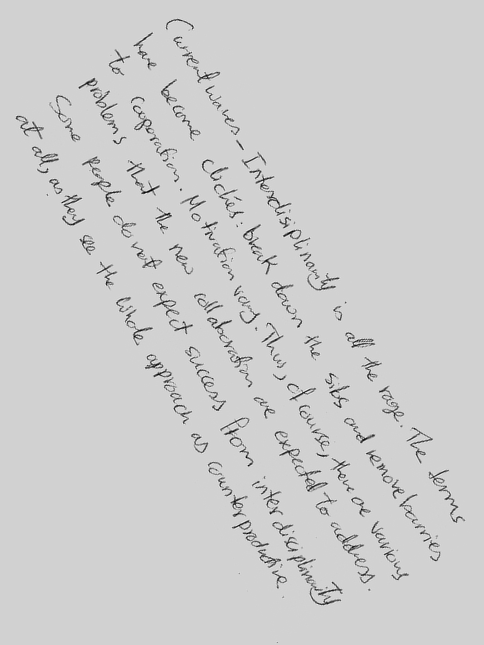 Current waves - Interdisiplinarity is all the rage. The terms
have become clichés: break down the silos and remove barries
to cooporation. Motivation vary. Thus, of course, there are various
problems that the new collaboration are expected to address.
Some people do not expect success from interdisciplinarity
at all, as they see the whole approach as counterproductive.